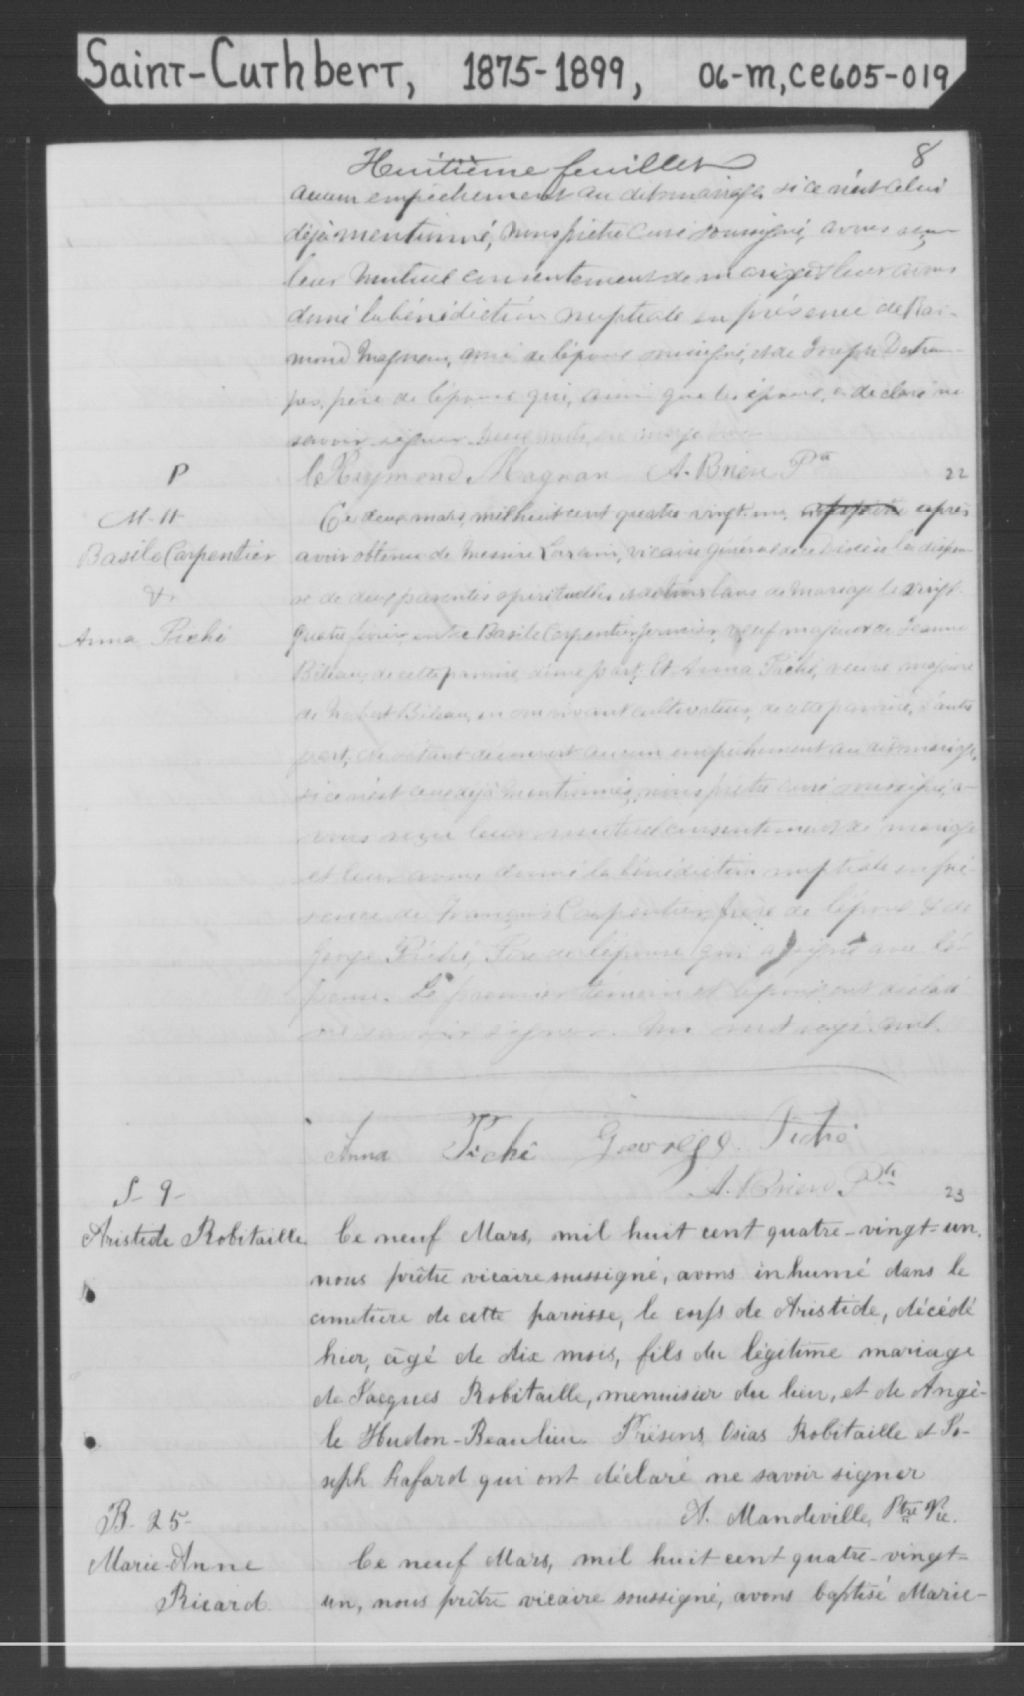 Saint-Cuthbert, 1875-1899, 06-M, CE605-019
Huitième feuillet 8
aucun empêchement au dit mariage si ce n'est celui
déjà mentionné, nous prêtre curé soussigné, avons reçu
leur mutuel consentement de mariage et leur avons
donné la bénédiction nuptiale en présence de Rai-
mond Magnan, ami de l'époux soussigné, et de Joseph
père de l'épouse qui, ainsi que les époux, a déclaré ne
savoir signer.
P
Raymond Magnan A. Brien Ptr
22
M. 11
Basile Carpentier
&
Anna Piché
Ce deux mars, mil huit cent quatre vingt-un, après
avoir obtenu de Messire Lorrain, vicaire général de ce Diocèse la dispen-
se de deux parentés spirituelles et de trois bans de mariage le vingt
quatre février, entre Basile Carpentier, fermier, veuf majeur de Jeanne
de cette paroisse, d'une part, Et Anna Piché, veuve majeure
de en son vivant cultivateur, de cette paroisse, d'autre
part, et n'étant découvert aucun empêchement au dit mariage,
si ce n'est ceux déjà mentionnés, nous prêtre curé soussigné, a-
vons reçu leur mutuel consentement de mariage
et leur avons donné la bénédiction nuptiale en pré-
sence de François Carpentier, frère de l'époux & de
George Piché, Père de l'épouse qui a signé avec l'é-
pouse. Le premier témoin et l'époux ont déclaré
ne savoir signer. Un mot rayé nul.
Anna Piché George Piché
A. Brien Ptr
23
S- 9-
Aristide Robitaille
Ce neuf Mars, mil huit cent quatre-vingt-un,
nous prêtre vicaire soussigné, avons inhumé dans le
cimetière de cette paroisse, le corps de Aristide, décédé
hier, âgé de dix mois, fils du légitime mariage
de Jacques Robitaille, menuisier du lieu, et de Angè-
le Hudon-Beaulieu. Présens Osias Robitaille et Jo-
seph Lafard qui ont déclaré ne savoir signer
A. Mandeville, Ptre Vic.
B. 25-
Marie-Anne
Ricard.
Ce neuf Mars, mil huit cent quatre-vingt-
un, nous prêtre vicaire soussigné, avons baptisé Marie-